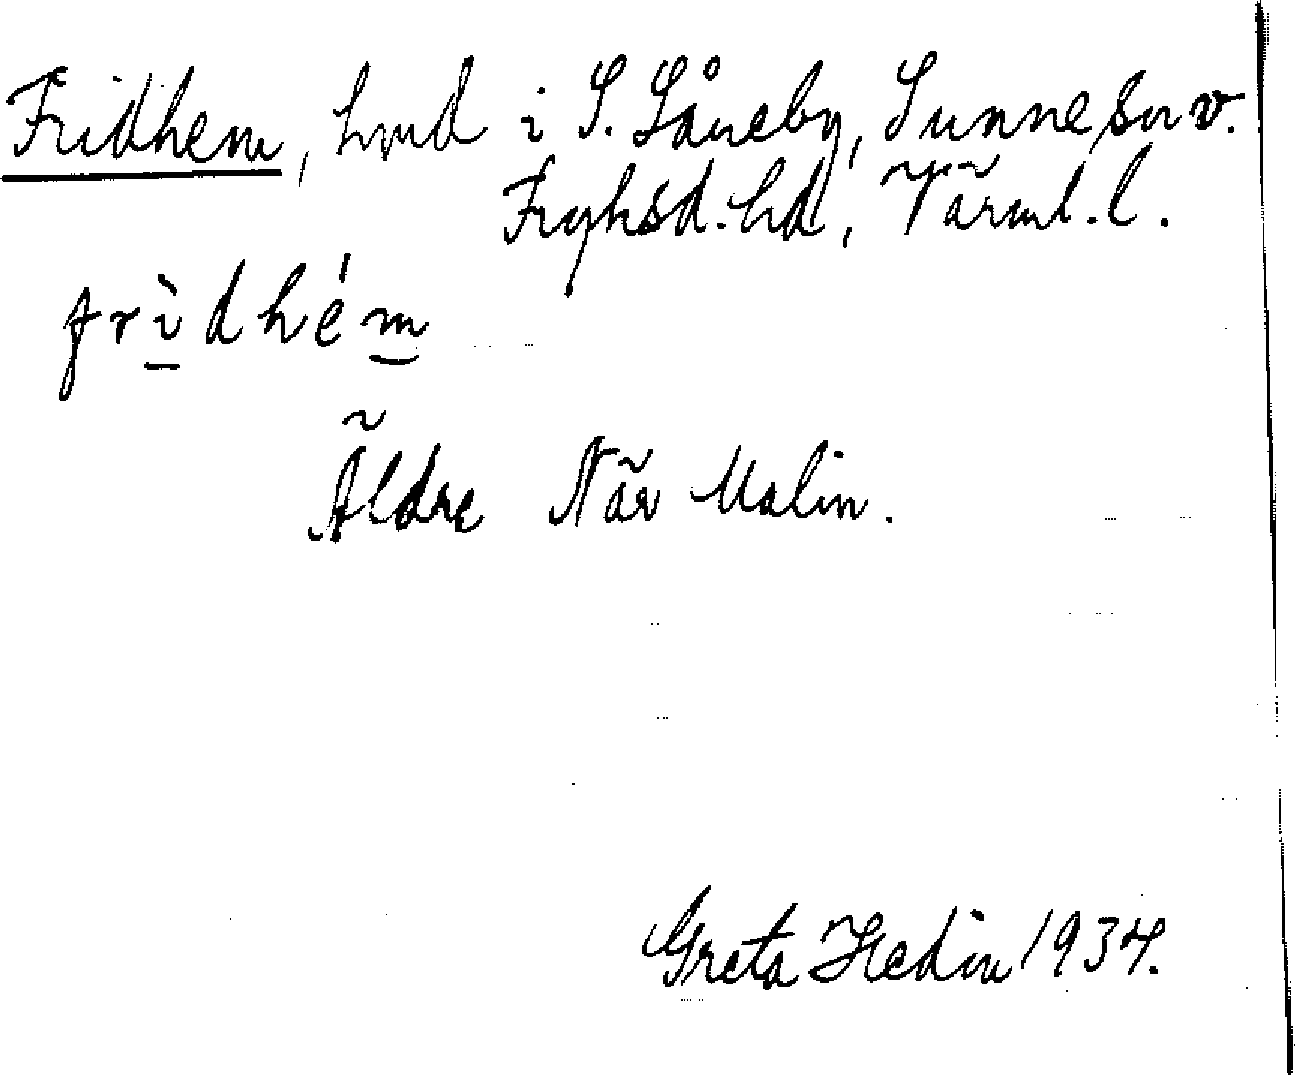 Fridhem, hmd i S. Låneby, Sunne snv.
Fryksd. hd, Värml. l.
fridhém
Äldre När Malin.
Greta Hedin 1934.